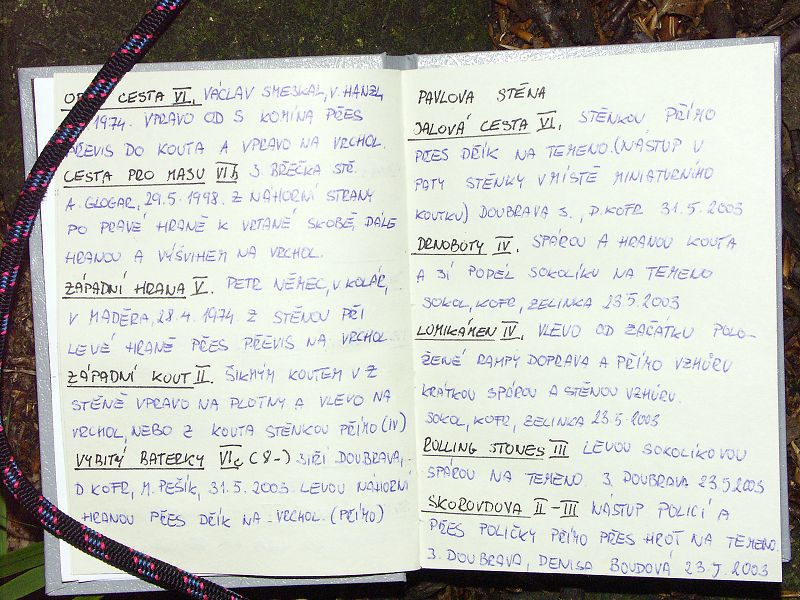 CESTA VI, VÁCLAV SMESKAL, V. HANZL
1974. VPRAVO OD S KOMÍNA PŘES
PŘEVIS DO KOUTA A VPRAVO NA VRCHOL.
CESTA PRO MASU VIb J. BŘEČKA STĚ.
A. GLOGAR, 29.5.1998. Z NÁHORNÍ STRANY
PO PRAVÉ HRANĚ K VRTANÉ SKOBĚ, DÁLE
HRANOU A VÝŠVIHEM NA VRCHOL.
ZÁPADNÍ HRANA V. PETR NĚMEC, V KOLÁŘ,
V MADĚRA, 28.4.1974. Z STĚNOU PŘI
LEVÉ HRANĚ PŘES PŘEVIS NA VRCHOL.
ZÁPADNÍ KOUT II. ŠIKMÝM KOUTEM V Z
STĚNĚ VPRAVO NA PLOTNY A VLEVO NA
VRCHOL, NEBO Z KOUTA STĚNKOU PŘÍMO (IV)
VYBITÝ BATERKY VIc (8-) JIŘÍ DOUBRAVA,
D KOFR, M. PEŠÍK, 31.5.2003. LEVOU NÁHORNÍ
HRANOU PŘES DŘÍK NA VRCHOL. (PŘÍMO)
PAVLOVA STĚNA
JALOVÁ CESTA VI. STĚNKOU PŘÍMO
PŘES DŘÍK NA TEMENO. (NÁSTUP U
PATY STĚNKY V MÍSTĚ MINIATURNÍHO
KOUTKU) DOUBRAVA J., D. KOFR 31.5.2003
DRNOBOTY IV. SPÁROU A HRANOU KOUTA
A JÍ PODÉL SOKOLÍKU NA TEMENO
SOKOL, KOFR, ZELINKA 23.5.2003
LOMIKÁMEN IV, VLEVO OD ZAČÁTKU POLO-
ŽENÉ RAMPY DOPRAVA A PŘÍMO VZHŮRU
KRÁTKOU SPÁROU A STĚNOU VZHŮRU.
SOKOL, KOFR, ZELINKA 23.5.2003
ROLLING STONES III LEVOU SOKOLÍKOVOU
SPÁROU NA TEMENO. J. DOUBRAVA 23.5.2003
SKOROVDOVA II-III NÁSTUP POLICÍ A
PŘES POLIČKY PŘÍMO PŘES HROT NA TEMENO.
J. DOUBRAVA, DENISA BOUDOVÁ 23.5.2003